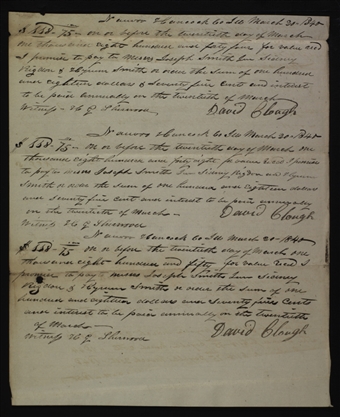 Nauvoo Hancock Co Ills March 20 - 1840
$ 118. 75 - on or before the twentieth day of March
one thousand eight hundred and forty four for value recd
I promise to pay to Messrs Joseph Smith Jun Sidney
Rigdon & Hyrum Smith or order the Sum of one hundred
and eighteen dollars & Seventy five Cents and interest
to be paid annually on the twentieth of March
Witness H G Sherwood David Clough
Nauvoo Hancock Co Ills March 20 - 1840
$ 118. 75 - on or before the twentieth day of March one
thousand eight hundred and forty eight for value recd I promise
to pay to Messrs Joseph Smith Jun Sidney Rigdon and Hyrum
Smith or order the Sum of one hundred and eighteen dollars
and seventy five cent and interest to be paid annually
on the twentieth of March - David Clough
Witness H G Sherwood
Nauvoo Hancock Co Ills March 20 - 1840
$ 118. 75 on or before the twentieth day of March one
thousand eight hundred and fifty for value recd I
promise to pay to Messrs Joseph Smith Jun Sidney
Rigdon & Hyrum Smith or order the Sum of one
hundred and eighteen dollars and seventy five Cents
and interest to be paid annually on the twentieth
of March
Witness H G Sherwood David Clough